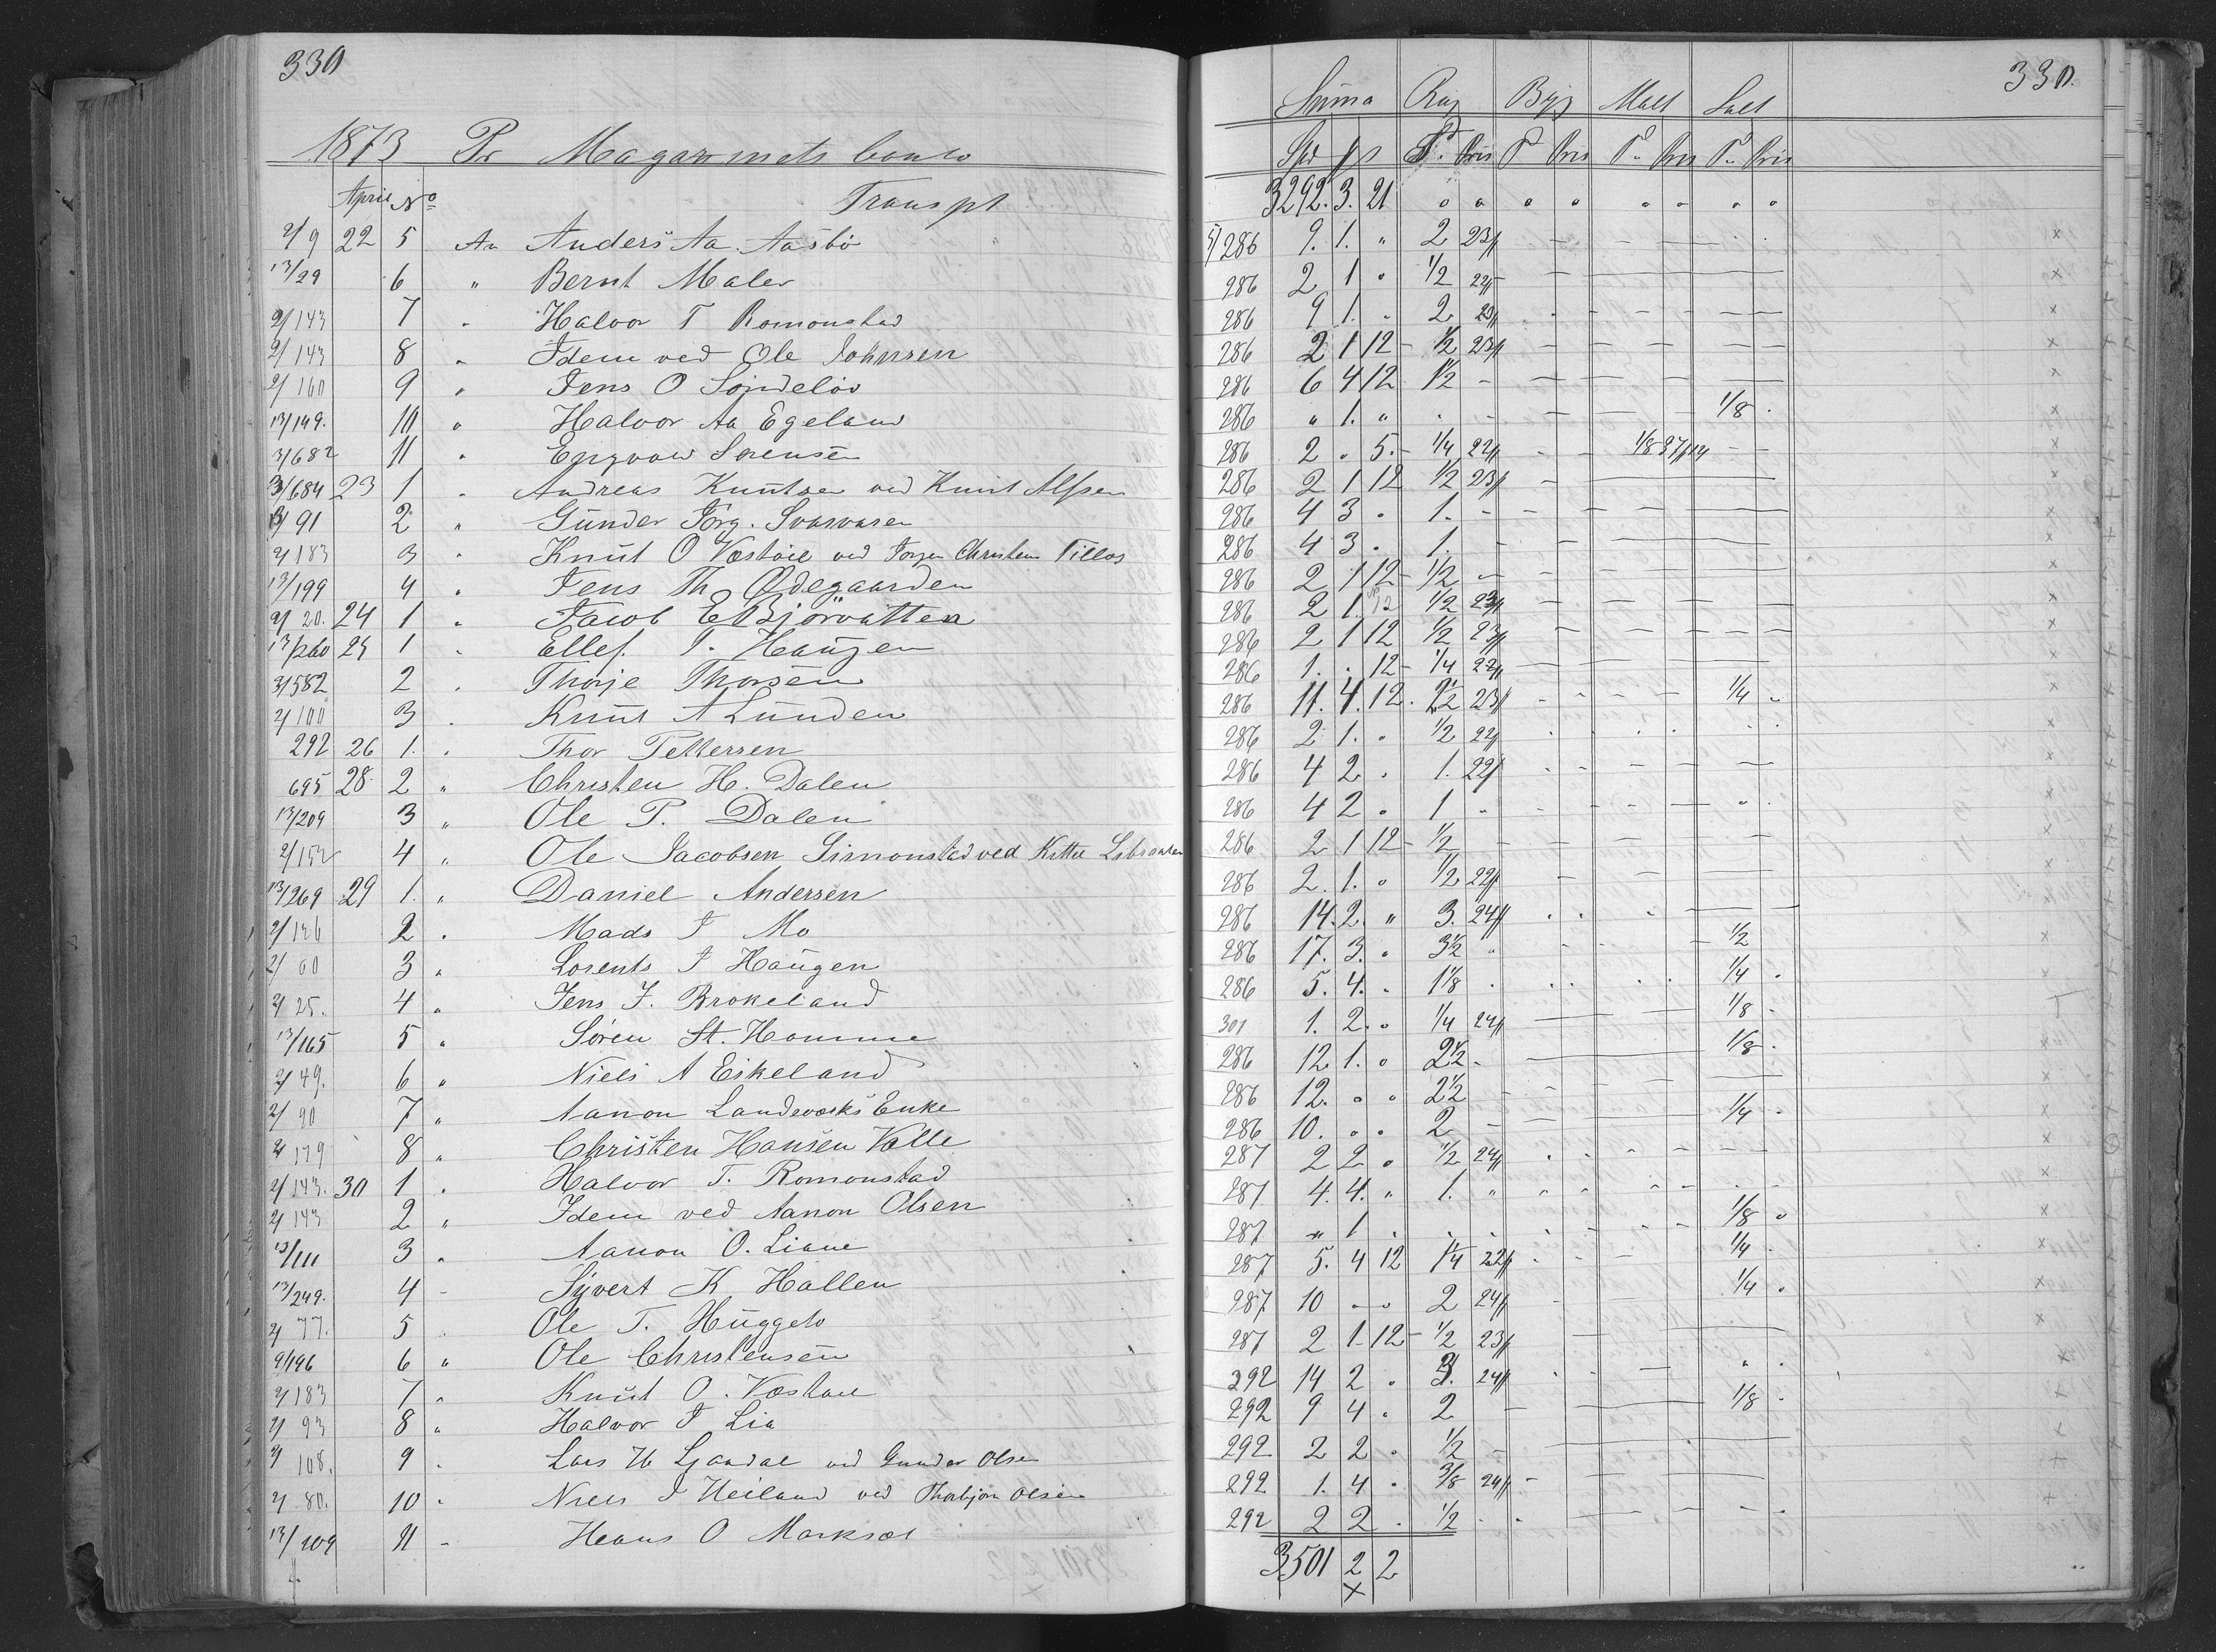 330
330.
Suma Rug Byg Malt Salt
1873 Pr Magasinets Conto
Spd ƒ s T. Pris T Pris T. Pris T. Pris
April No Transpt 3292. 3. 21
2/9 22 5 An Anders Aa. Aasbö 286 9. 1. " 2 23ƒ
13/29 6 " Bernt Maler 286 2 1 " 1/2 22ƒ
2/143 7 " Halvor T Romonstad 286 9 1. " 2 23ƒ
2/143 8 " Idem ved Ole Johnsen 286 2 1 12 1/2 23ƒ
2/160 9 " Jens O Söndelöv 286 6 4 12 1 1/2 "
13/149. 10 " Halvor Aa Egeland 286 " 1. " 1/8
3/682 11 " Engvow Sörensen 286 2 " 5. 1/4 22ƒ 1/8
3/684 23 1 " Andreas Knutsen ved Knut Alfsen 286 2 1 12 1/2 23ƒ
13/91 2 " Gunder Jörg. Svasvasen 286 4 3 " 1.
2/183 3 " Knut O Væstöl ved Jörgen Christens Tillos 286 4 3 " 1.
13/199 4 " Jens Th Ödegaarden 286 2 1 12 1/2
2/20. 24 1 " Jacob E Björvatten 286 2 1. 12 1/2 23ƒ
13/260 25 1 " Ellef T. Haugen 286 2 1 12 1/2 23ƒ
3/582 2 " Thorje Thorsen 286 1. " 12 1/4 22ƒ
2/100 3 " Knut A Lunden 286 11. 4. 12. 2 1/2 23ƒ 1/4
292 26 1. " Thor Pettersen 286 2 1. " 1/2 22ƒ
695 28. 2 " Christen H. Dalen 286 4 2 " 1. 22ƒ
13/209 3 " Ole P. Dalen 286 4 2 " 1 "
2/152 4 " Ole Jacobsen Simonstad ved Kittel 286 2 1 12 1/2
13/269 29 1. " Daniel Andersen 286 2. 1. " 1/2 22ƒ
2/126 2 " Mads J Mo 286 14. 2. " 3. 24ƒ
2/60 3 " Lorents J Haugen 286 17. 3. " 3 1/2 " 1/2
2/25. 4 " Jens J. Brokeland 286 5. 4. " 1 1/8 1/4
13/165 5 " Sören St. Homme 301 1. 2. " 1/4 24ƒ 1/8
2/49. 6 " Niels A Eikeland 286 12. 1. " 2 1/2 1/8
2/90 7 " Aanon Landeværks Enke 286 12. " " 2 1/2
2/179 8 " Christen Hansen Valle 286 10. " " 2 1/4
2/143. 30 1 " Halvor T. Romonstad 287 2 2 " 1/2 24ƒ
2/143 2 " Idem ved Aanon Olsen 287 4. 4. " 1. "
13/111 3 " Aanon O. Liane 287 " 1 1/8
13/249. 4 " Syvert K Hallen 287 5. 4 12 1 1/4 22ƒ 1/4
2/77. 5 " Ole T. Huggeto 287 10 " " 2 24ƒ 1/4
2/196 6 " Ole Christensen 287 2 1 12 1/2 23ƒ
2/183 7 " Knut O. Væstöl 292 14 2 " 3. 24ƒ
2/93 8 " Halvor J Lia 292 9 4 " 2 1/8
2/108. 9 " Lars H Ljosdal ved Gunder Olsen 292 2 2 " 1/2
2/80. 10 " Niels J Heiland ved Thorbjörn Olsen 292 1. 4 " 3/8 24ƒ
13/209 11 " Hans O Marksæt 292 2 2 " 1/2
3501 2 2